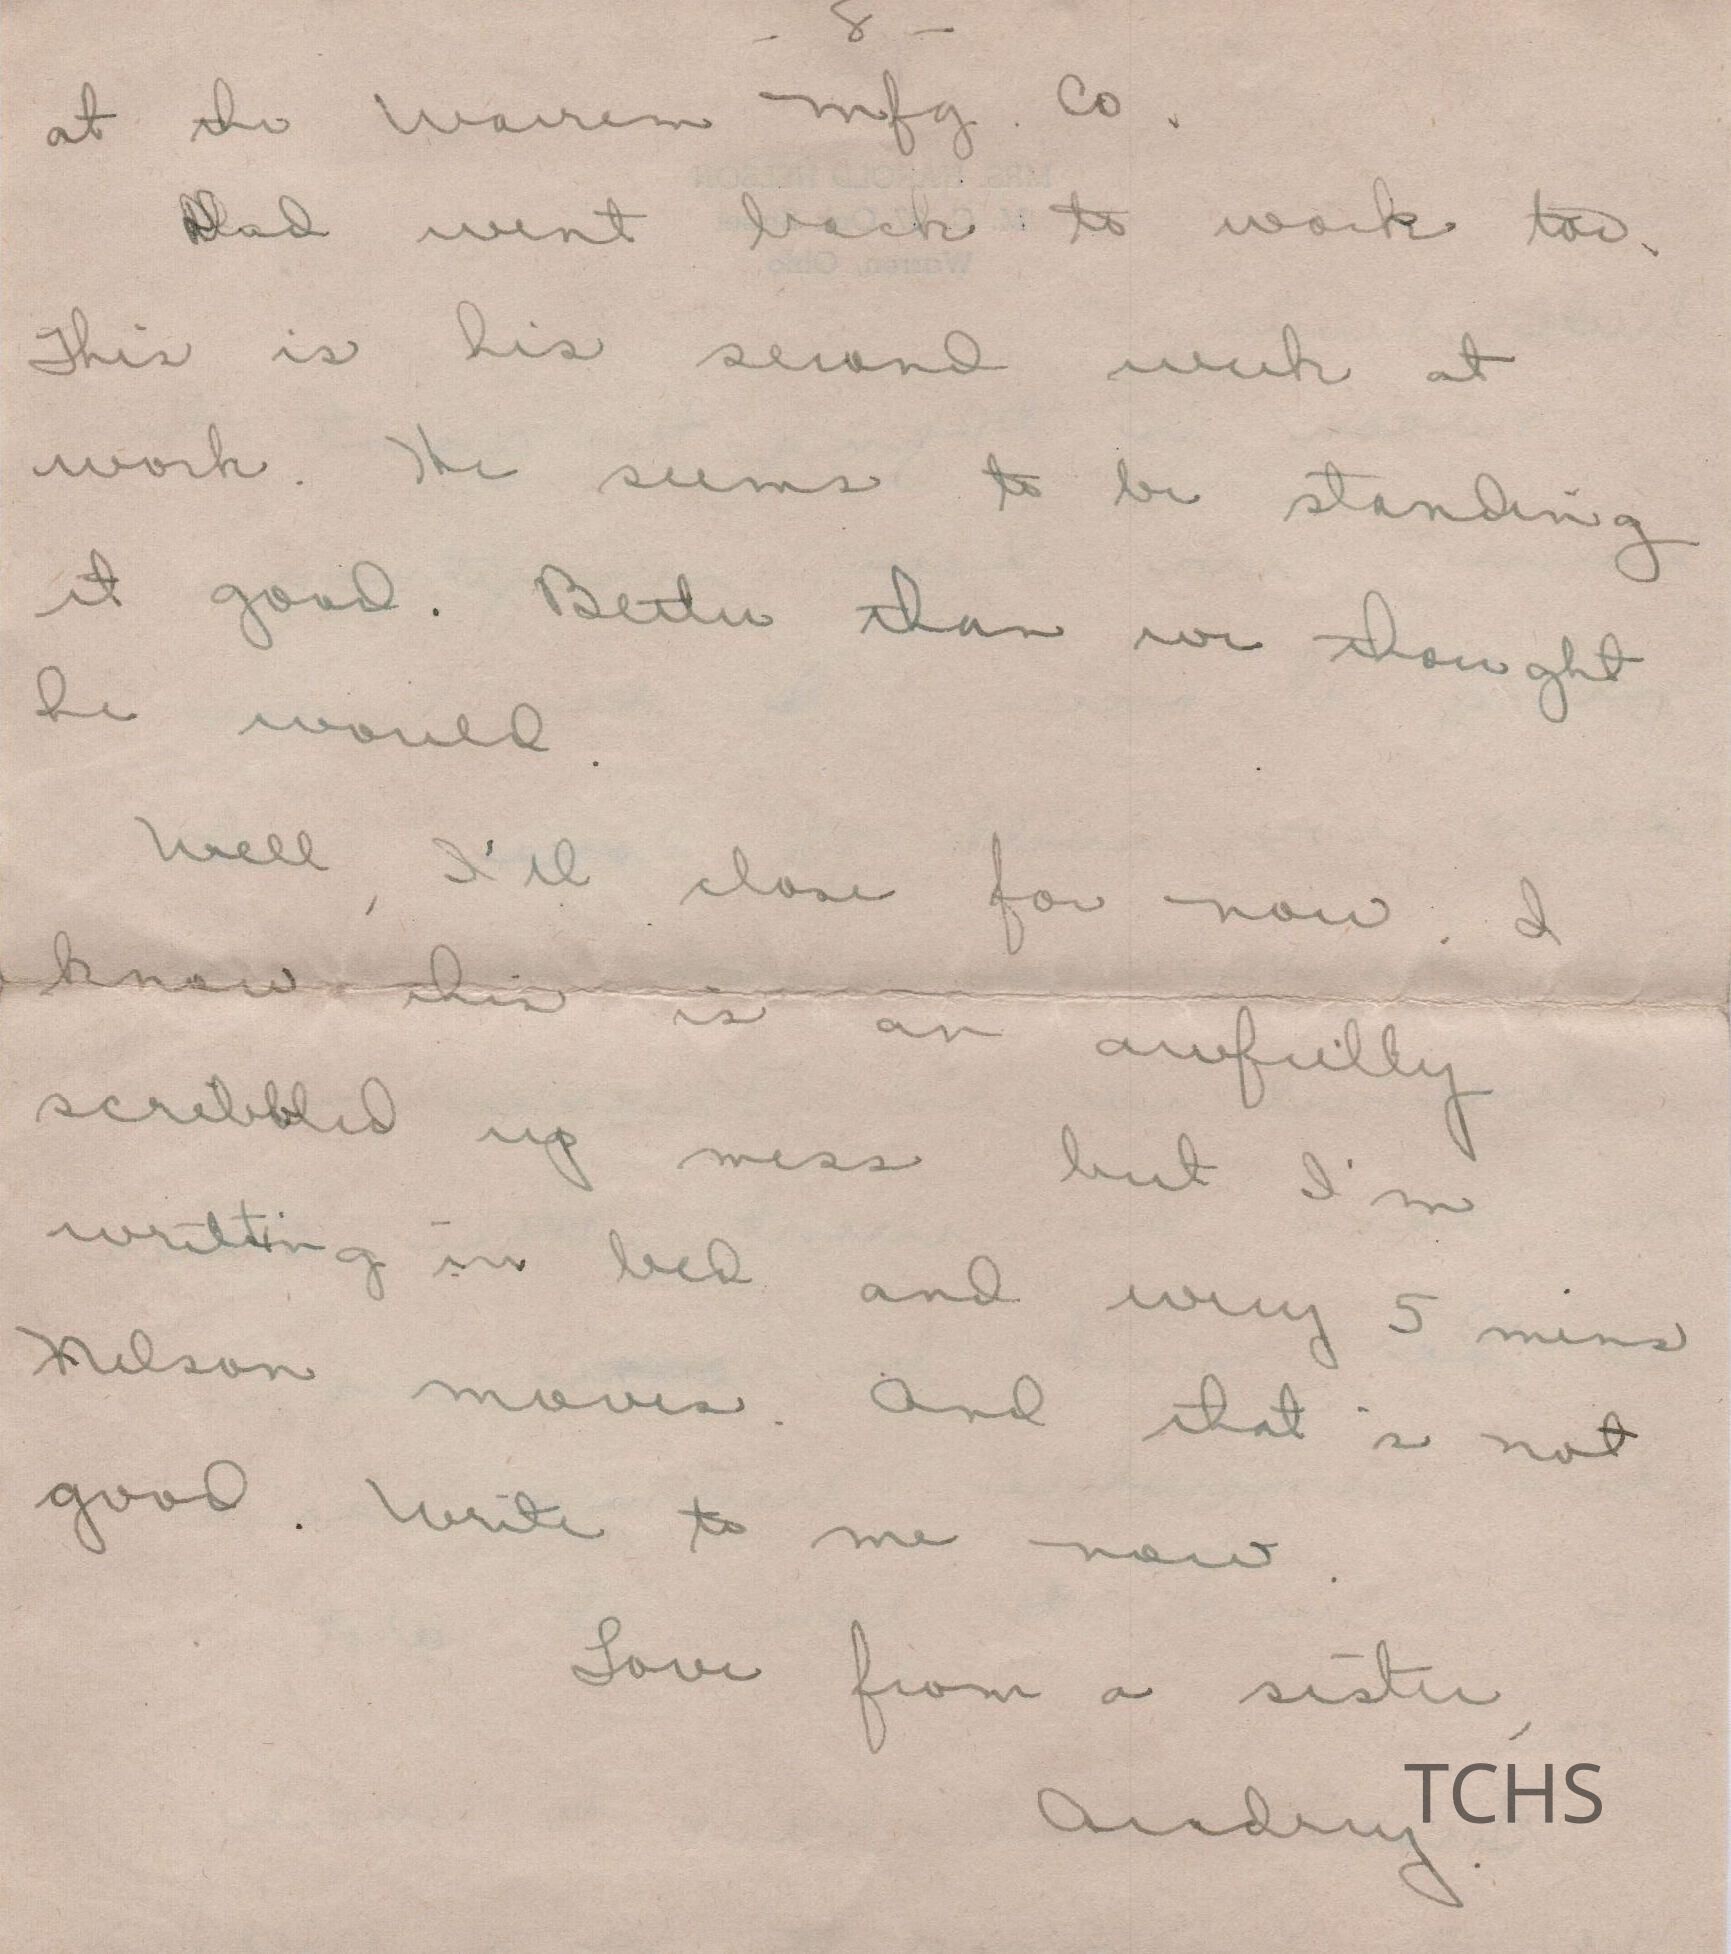 - 8 -
at the Warren Mfg. Co.
Dad went back to work too.
This is his second week at
work. He seems to be standing
it good. Better than we thought
he would.
Well, I'll close for now. I
know this is an awfully
scribbled up mess but I'm
writting in bed and every 5 mins
Nelson moves. And that's not
good. Write to me now.
Love from a sister,
Audrey.
TCHS
MRS. HAROLD NELSON
Warren, Ohio